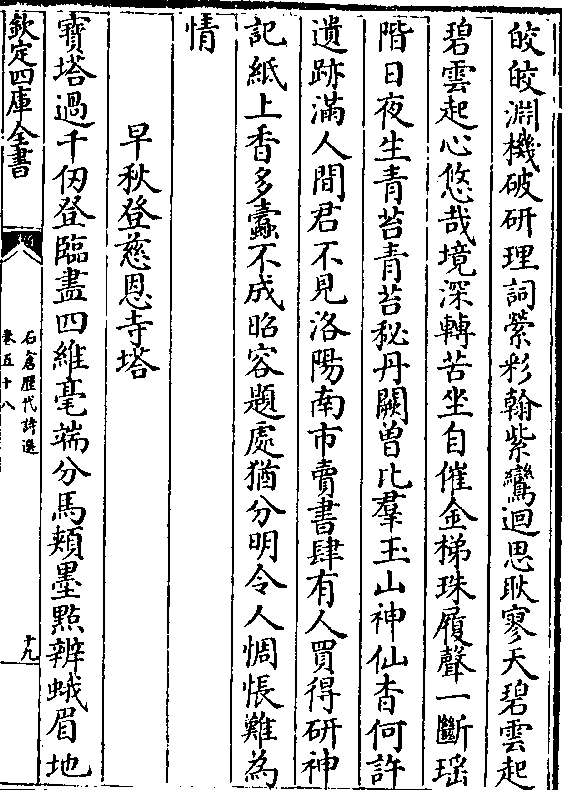 皎皎淵機破研理詞縈彩翰紫鸞迴思耿寥天碧雲起
碧雲起心悠哉境深轉苦坐自催金梯珠履聲一斷瑶
階日夜生青苔青苔秘丹闕曽比羣玉山神仙杳何許
遺跡滿人間君不見洛陽南市賣書肆有人買得研神
記紙上香多蠧不成昭容題處猶分明令人惆悵難為
情
早秋登慈恩寺塔
寶塔過千仞登臨盡四維毫端分馬頰墨點辨蛾眉地
欽定四庫全書
石倉歴代詩選
卷五十八
十九